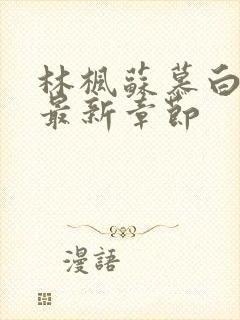 林楓蘇慕白
最新章節
漫語